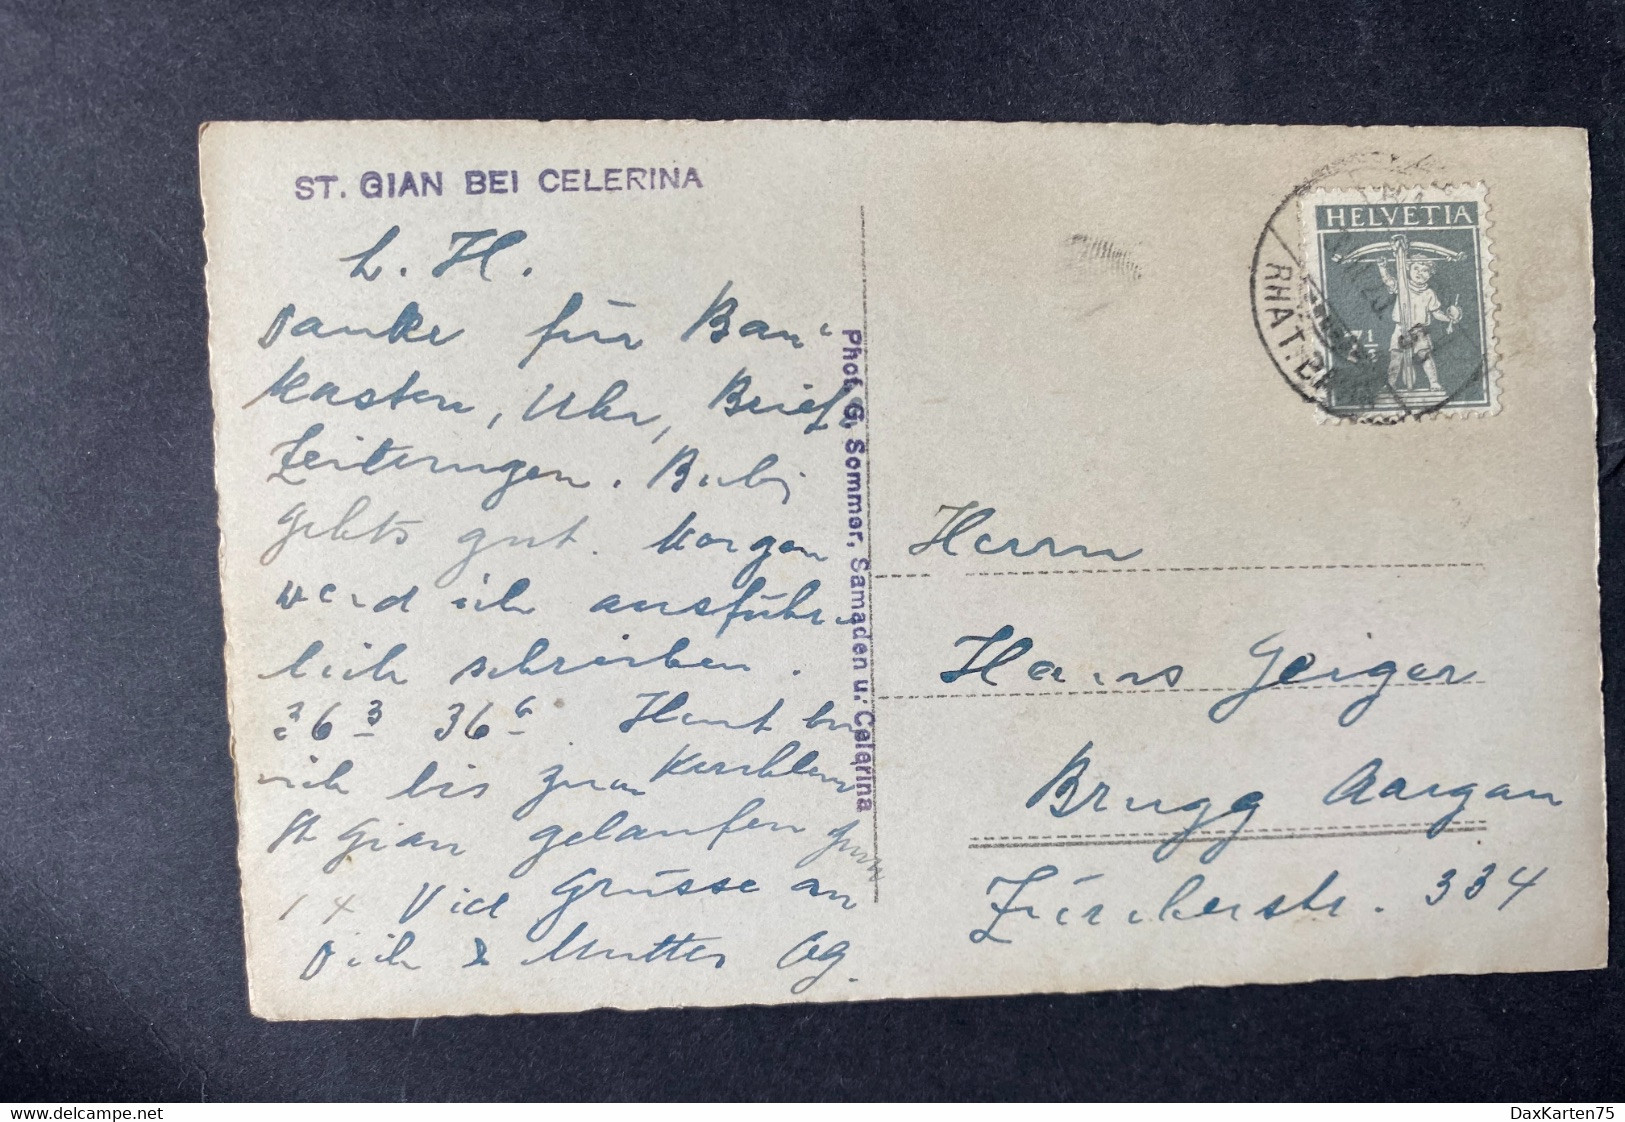 ST. GIAN BEI CELERINA
L. H.
Danke für Bau-
kasten, Uhr, Brief
Zeitungen. Bubi
gehts gut. Morgen
werd ich ausführ-
lich schreiben.
36 3 36 6 Heut bin
ich bis zum Kirchlein
St Gian gelaufen
14 Viel Grüsse an
Dich & Mutter
Phot. G. Sommer, Samaden u. Celerina
HELVETIA
7½
RHAT. BAHN
Herrn
Hans Geiger
Brugg Aargau
Zürcherstr. 334
www.delcampe.net
DaxKarten75